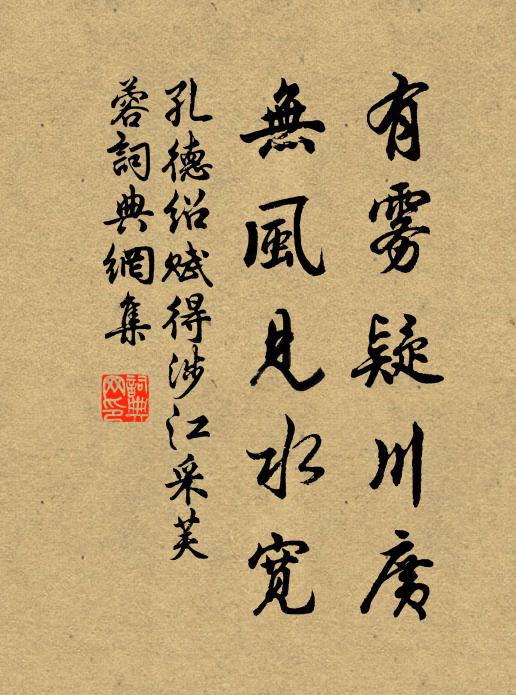 有雾疑川廣
無風見水寬
孔德绍赋得涉江采芙
蓉詞典網集
詞典
网印